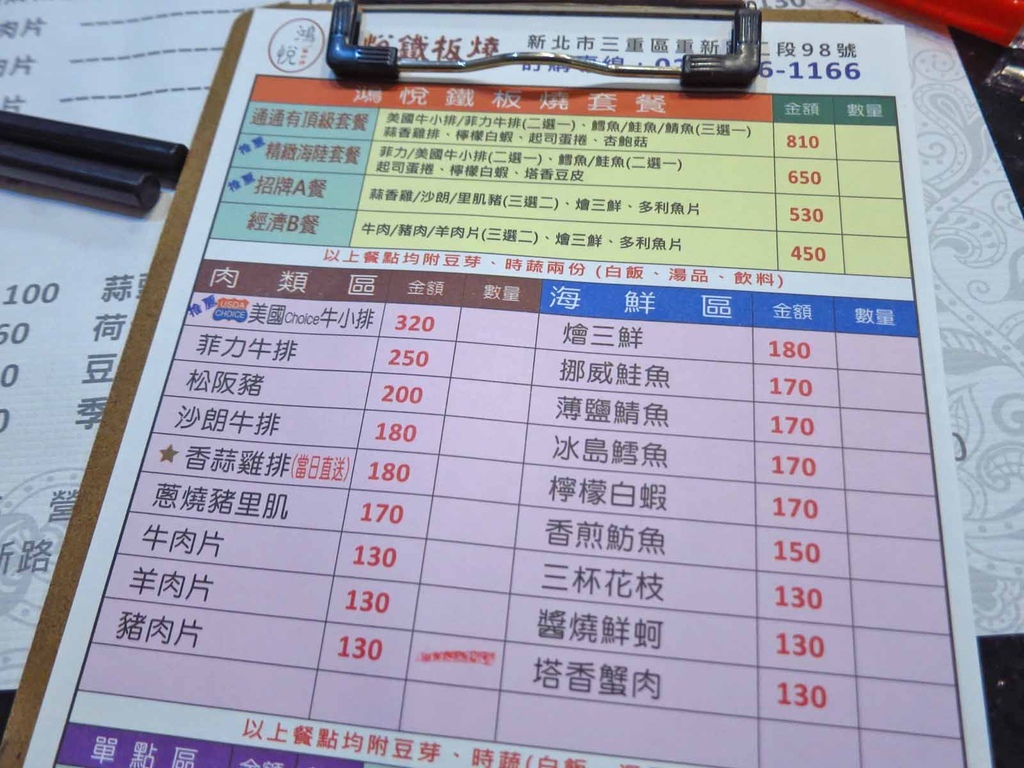 鴻悅
鐵板燒
新北市三重區重新
二段98號
6-1166
鴻悅鐵板燒套餐 金額 數量
通通有頂級套餐 美國牛小排/菲力牛排(二選一)、鱈魚/鮭魚/鯖魚(三選一)
蒜香雞排、檸檬白蝦、起司蛋捲、杏鮑菇 810
推薦 精緻海陸套餐 菲力/美國牛小排(二選一)、鱈魚/鮭魚(二選一)
起司蛋捲、檸檬白蝦、塔香豆皮 650
推薦 招牌A餐 蒜香雞/沙朗/里肌豬(三選二)、燴三鮮、多利魚片 530
經濟B餐 牛肉/豬肉/羊肉片(三選二)、燴三鮮、多利魚片 450
以上餐點均附豆芽、時蔬兩份(白飯、湯品、飲料)
肉類區 金額 數量 海鮮區 金額 數量
推薦 USDA CHOICE 美國Choice牛小排 320 燴三鮮 180
菲力牛排 250 挪威鮭魚 170
松阪豬 200 薄鹽鯖魚 170
沙朗牛排 180 冰島鱈魚 170
★香蒜雞排(當日直送) 180 檸檬白蝦 170
蔥燒豬里肌 170 香煎魴魚 150
牛肉片 130 三杯花枝 130
羊肉片 130 醬燒鮮蚵 130
豬肉片 130 塔香蟹肉 130
以上餐點均附豆芽、時蔬(白飯、
單點區 金額
肉片
片
片
130
100 蒜
60 荷
0 豆
0 季
營
新路